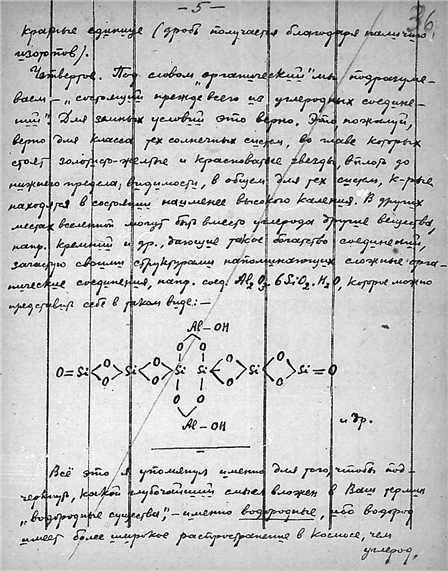 — 5 —
36.
кратные единице (дробь получается благодаря наличию
изотопов).
Четвертое. Под словом „органический" мы подразуме-
ваем — „состоящий прежде всего из углеродных соедине-
ний". Для земных условий это верно. Это, пожалуй,
верно для класса тех солнечных систем, во главе которых
стоят золотисто-желтые и красноватые звезды, вплоть до
нижнего предела видимости, в общем для тех систем, к-рые
находятся в состоянии наименее высокого каления. В других
местах вселенной могут быть вместо углерода другие вещества,
напр. кремний и др., дающие такое богатство соединений,
зачастую своими структурами напоминающих сложные орга-
нические соединения, напр. соед. Al₂O₃.6SiO₂.H₂O, которое можно
представить себе в таком виде: —
Al — OH
O O
O=Si O O Si O O Si Si O O Si O O Si=O
O O
Al — OH
и др.
Всё это я упомянул именно для того, чтобы под-
черкнуть, какой глубочайший смысл вложен в Ваш термин
„водородные существа", — именно водородные, ибо водород
имеет более широкое распространение в Космосе, чем
углерод,